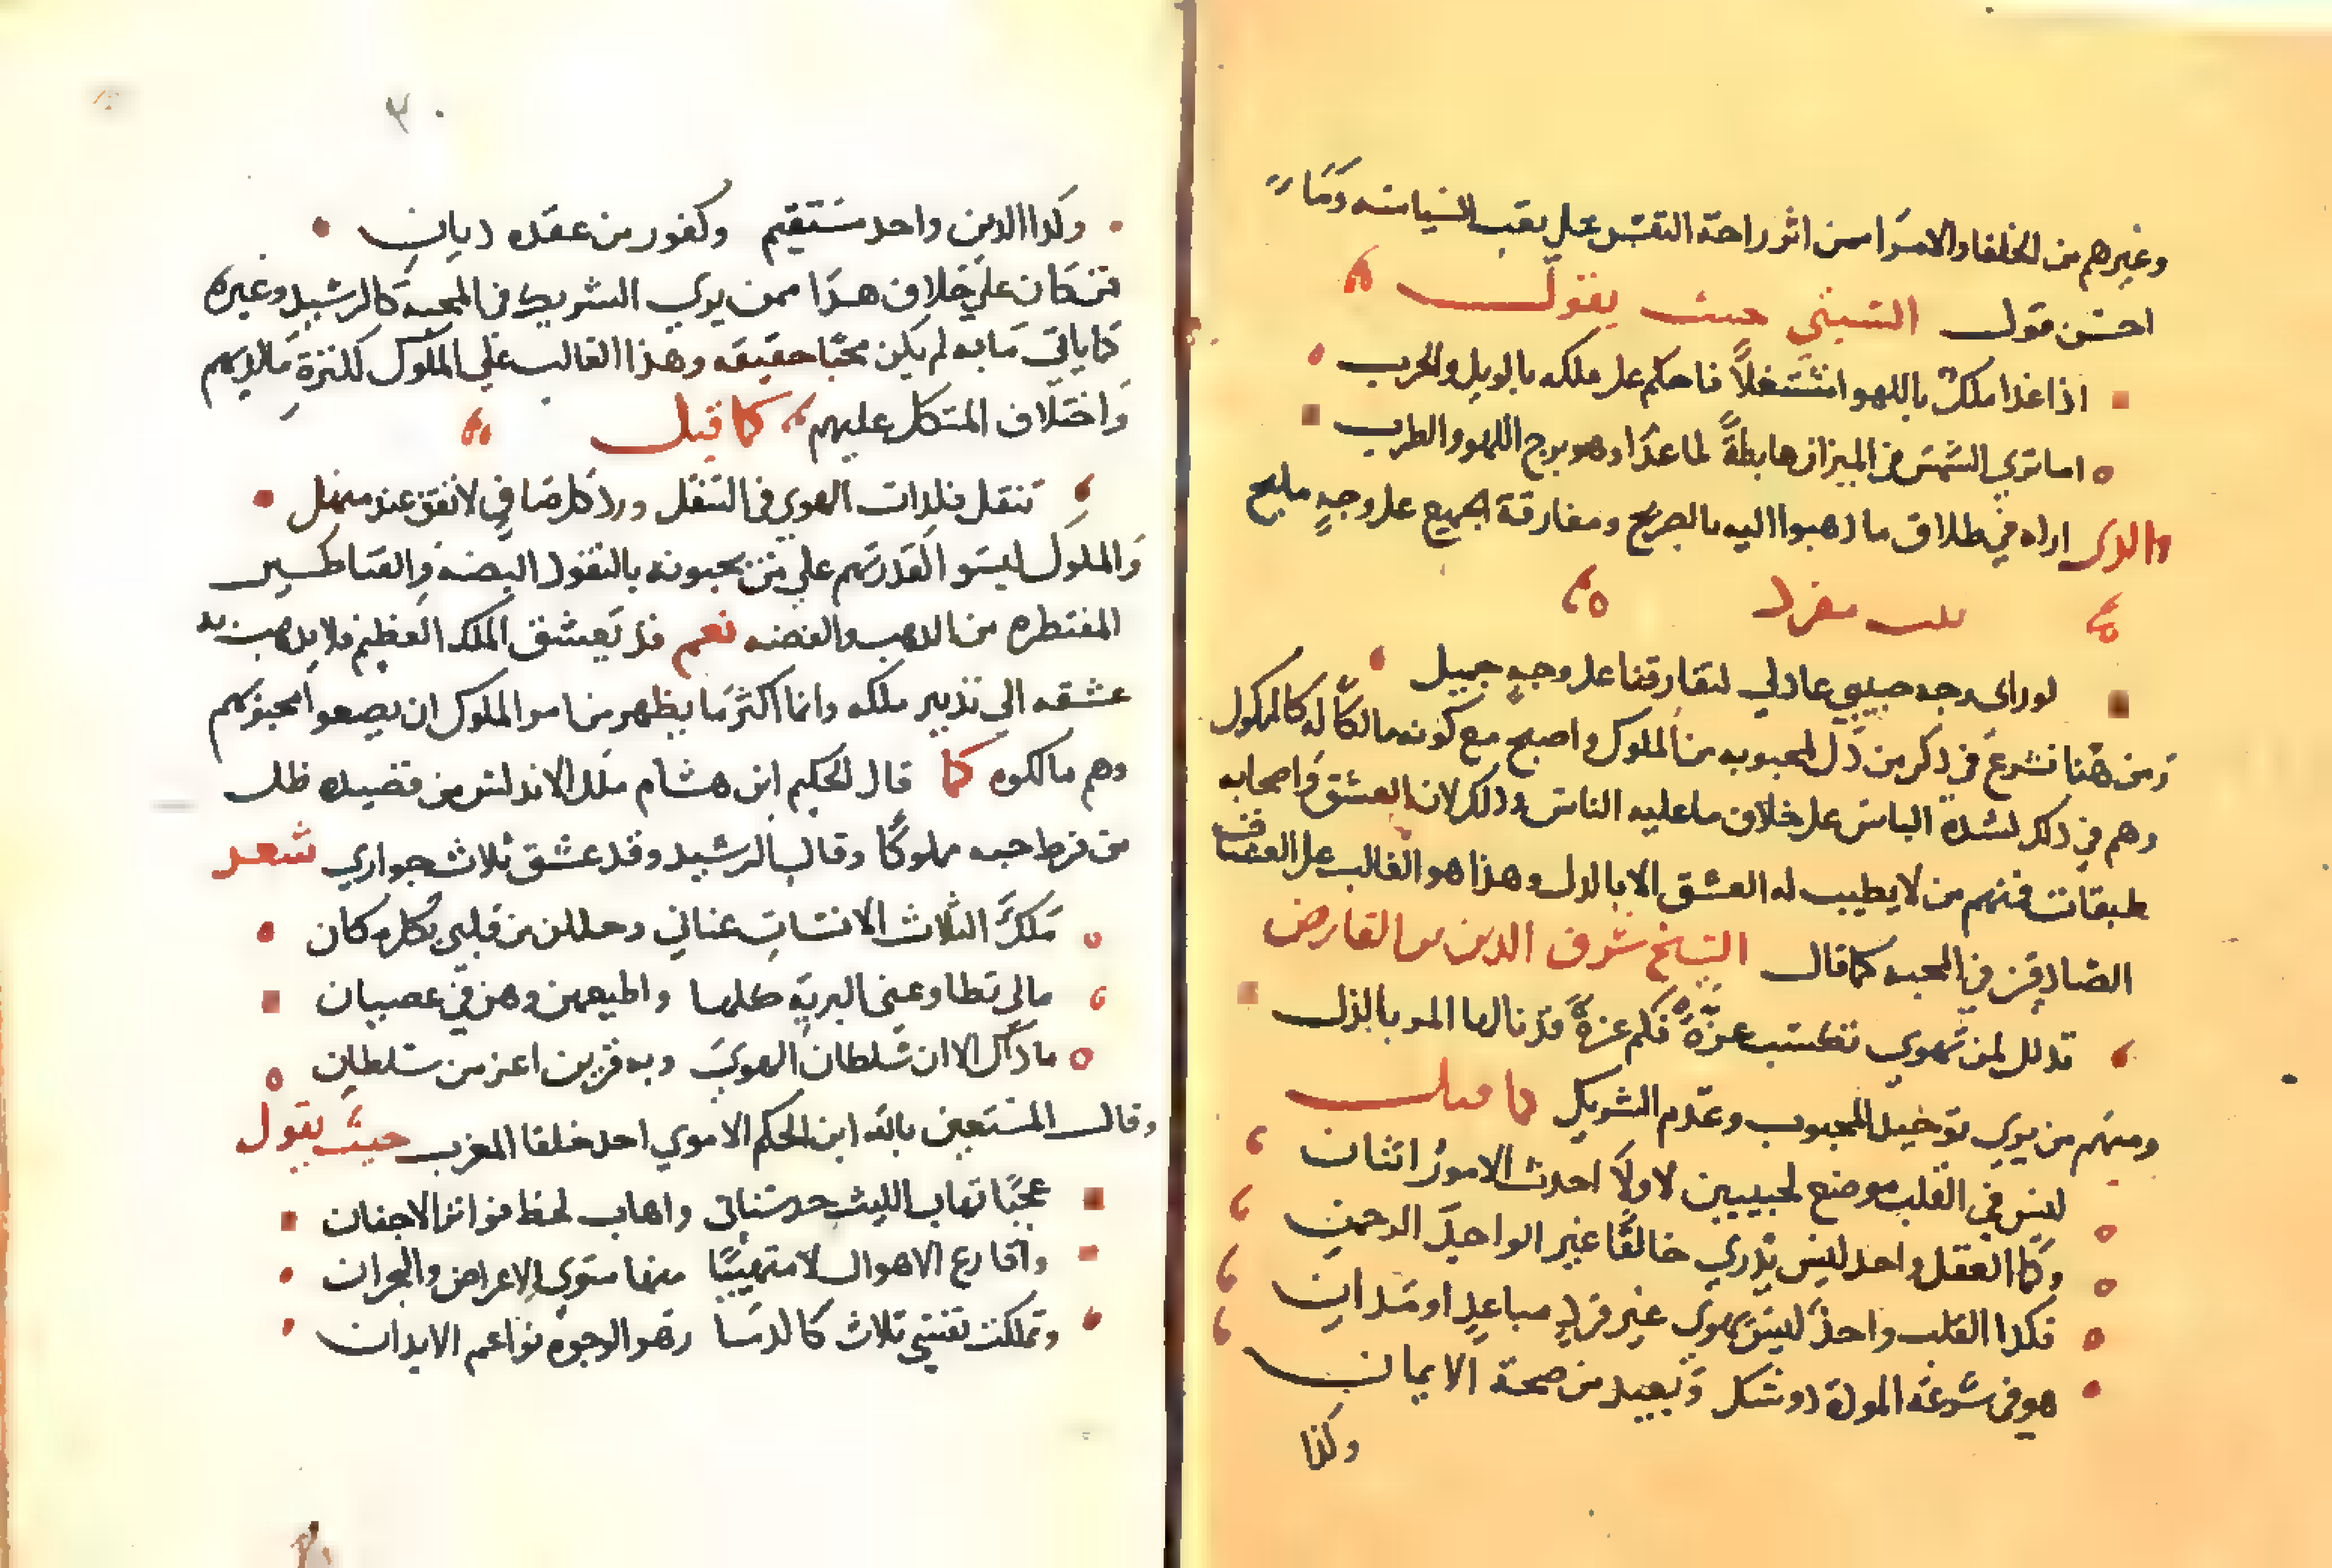 وغيرهم من الخلفا والامرا ممن اثر راحة النفس علي تعب السياسه وما
احسن قول البستي حيث يقول
اذا غدا ملكٌ باللهو مشتغلاً فاحكم على ملكه بالويل والحرب
اما تري الشمس في الميزان هابطةً لما غدا وهو برج اللهو والطرب
والذى اراه في طلاق ما ذهبوا اليه بالصريح ومفارقة الجميع على وجهٍ مليح
بيت مفرد
لوراى وجه حبيبي عادلي لتفارقنا على وجهٍ جميل
ومن هنا نشرع في ذكر من ذل لمحبوبه من الملوك واصبح مع كونه مالكًا له كالمملوك
وهم في ذلك لشدة الباس على خلاف ما عليه الناس وذلك لان العشق واصحابه
طبقات فمنهم من لا يطيب له العشق الا بالدل وهذا هو الغالب على العشاق
الصادقين في المحبه كما قال الشيخ شرف الدين بن الفارض
تدلل لمن تهوي تكتسب عزةً فكم عزةً قد نالها المر بالذل
ومنهم من يري توحيد المحبوب وعدم الشريك كما قيل
ليس في القلب موضع لحبيبين لا ولا احدث الامور اثنان
وكما العقل واحد ليس يدري خالقًا غير الواحد الرحمن
فكدا القلب واحدٌ ليس يهوى غير فردٍ مباعدٍ او مدان
هو في شرعة المودة ذو شك وبعيد من صحة الايمان
وكذا
٣٠
وكدا الدين واحد مستقيم وكفور من عقده ديان
فمن كان علي خلاف هدا ممن يري الشريك في المحبه كالرشيد وغيره
لم يكن محبًا حقيقه وهذا الغالب علي الملوك لكثرة مالديهم
واختلاف المتكل عليهم كما قيل
تنقل فلدات الهوي في التنقل ورد كل صافي لا تقف عند منهل
والملوك ليسوا لقدرتهم علي من يحبونه بالنقود البضه والقناطسير
المقنطره من الدهب والفضه نعم قد يعشق الملك العظيم ولا يدهب به
عشقه الى تدبير ملكه وانما اكثر ما يظهر من امو الملوك ان يصعوا لمحبوبهم
وهم مالكوه كما قال الحكيم ابن هشام ملك الاندلس من قصيده ظل
من فرط حبه مملوكًا وقال الرشيد وقد عشق ثلاث جواري شعر
ملك الثلاث الانسات عناني وحللن من قلبي بكل مكان
مالي تطاوعني البريه كلها واطيعهن وهن في عصيان
ما داك الا ان سلطان الهوي وبه قوين اعز من سلطان
وقال المستعين بالله ابن الحكم الاموي احد خلفا المغرب حيث يقول
عجبًا تهاب الليث حد سناني واهاب لحظ فواتر الاجفان
واقارع الاهوال لا متهيبًا منها سوي الاعراض والهجران
وتملكت نفسي ثلاث كالدما زهر الوجوه نواعم الابدان